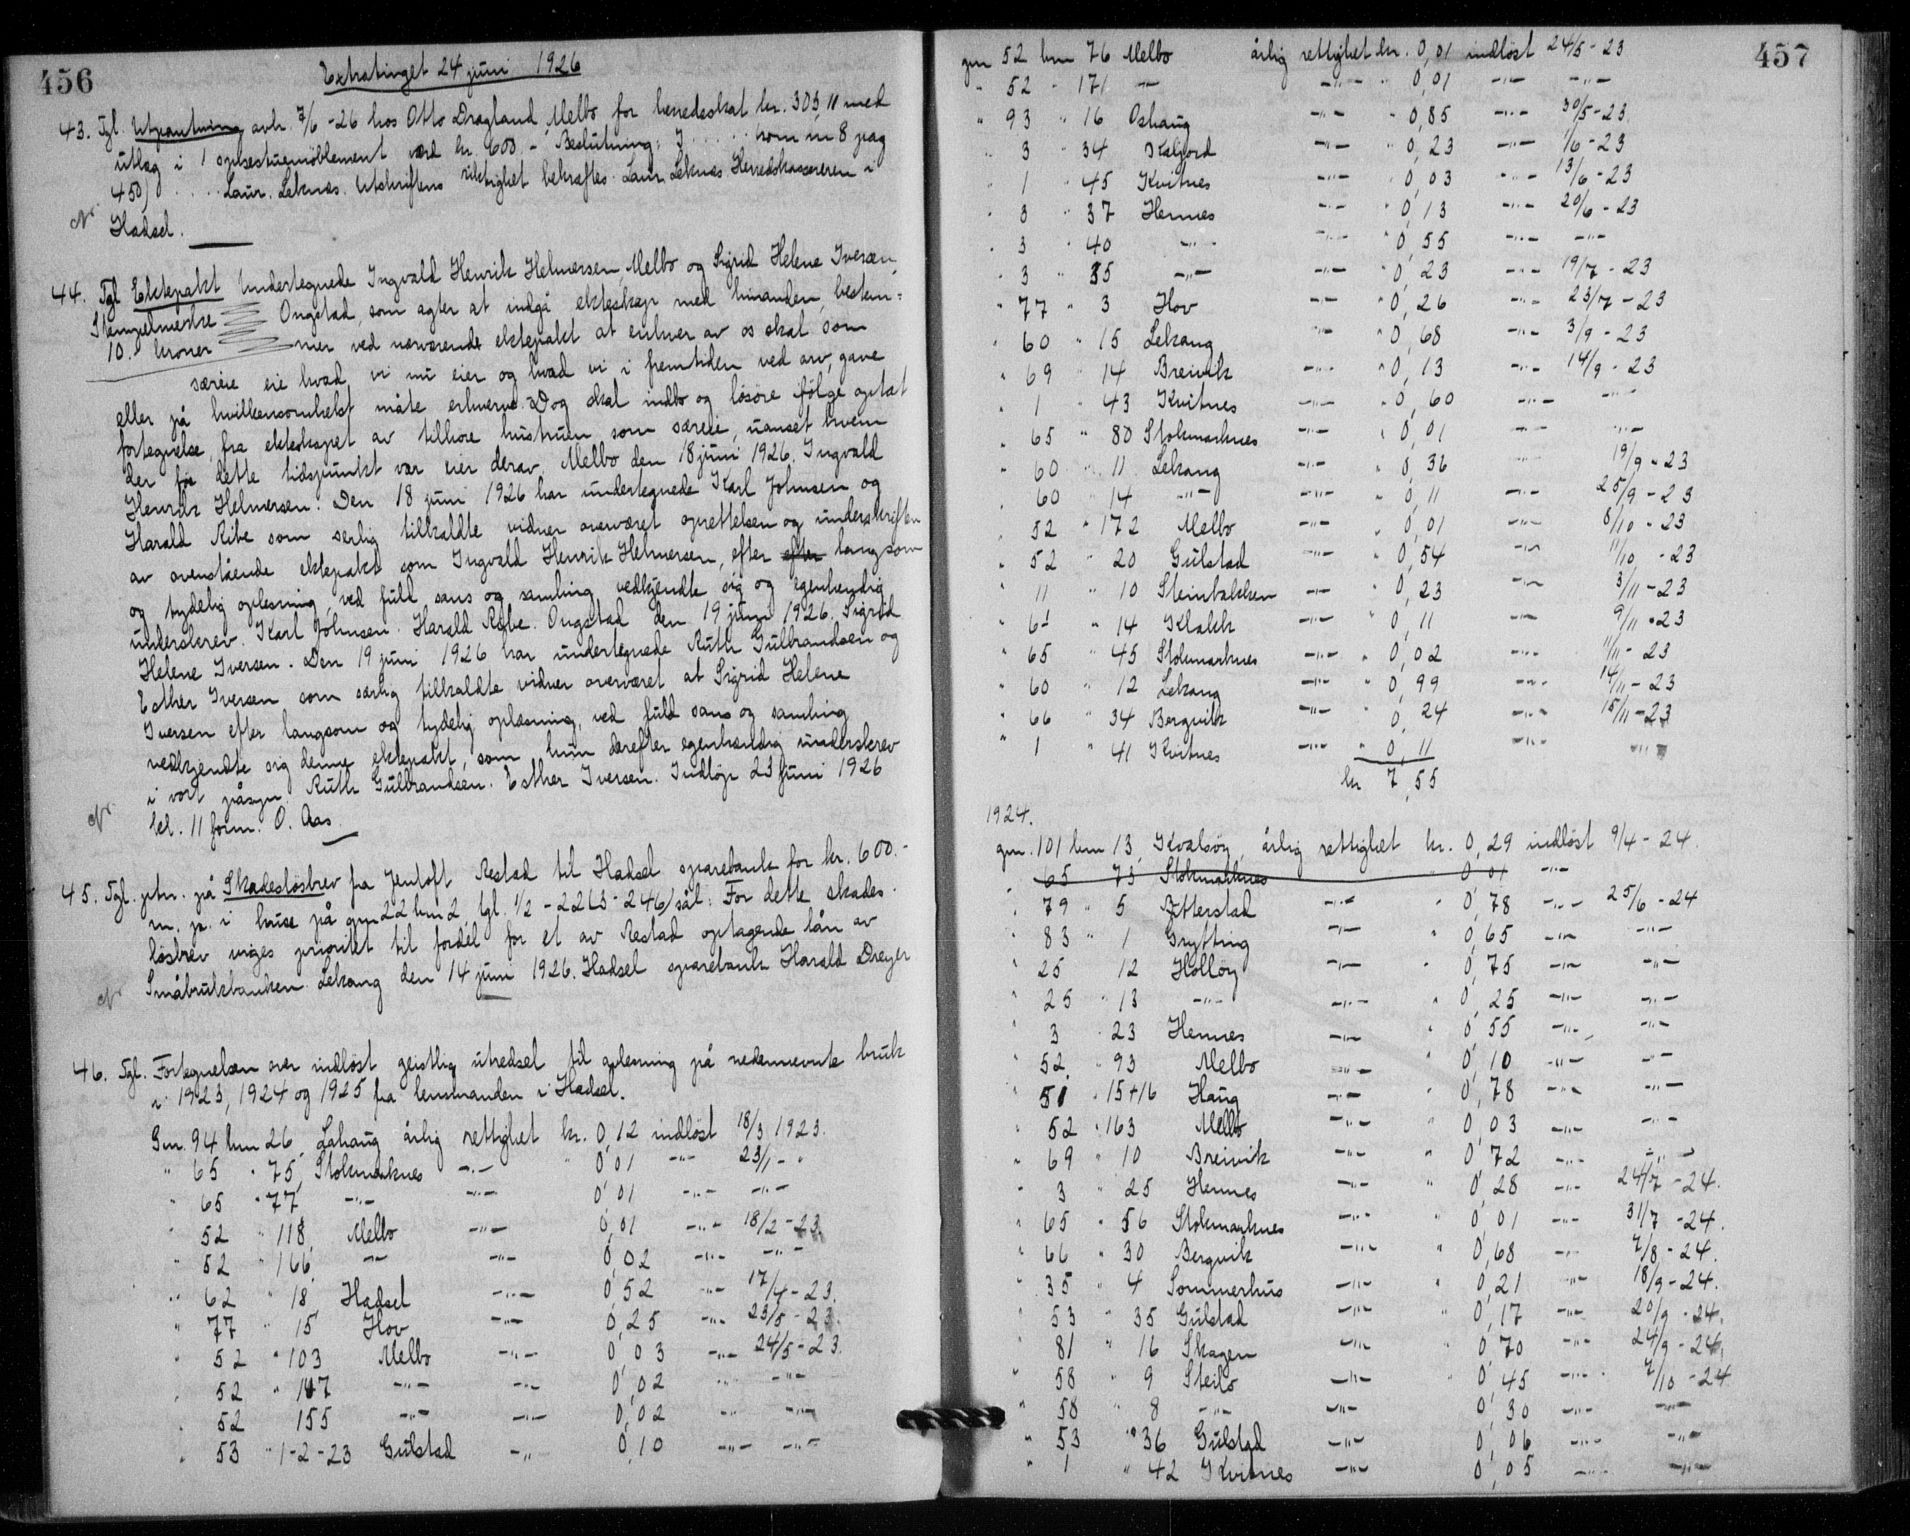 456
Extratinget 24 juni 1926
43. Tgl. Utpantning avh. 7/6 - 26 hos Otto Dragland, Melbo for herredsskat kr. 303,11 med
utlæg i 1 spisestuemöblement værd kr. 600.- Beslutning: J . . . . . som in 8 pag
450) . . . . . Laur. Leknes. Utskriftens riktighet bekræftes. Laur. Leknes Herredskassereren i
Hadsel.
44. Tgl. Ektepakt Undertegnede Ingvald Henrik Helmersen Melbo og Sigrid Helene Iversen,
Stempelmerke Ongstad, som agter at indgå ekteskap med hinanden, bestem=
10.- kroner mer ved nærværende ektepakt at enhver av os skal som
særeie eie hvad vi nu eier og hvad vi i fremtiden ved arv, gave
eller på hvilkensomhelst måte erhverve. Dog skal indbo og lösöre ifölge optat
fortegnelse, fra ekteskapet av tilhöre hustruen som særeie, uanset hvem
der för dette tidspunkt var eier derav. Melbo den 18 juni 1926. Ingvald
Henrik Helmersen. Den 18 juni 1926 har undertegnede Karl Johnsen og
Harald Ribe som serlig tilkaldte vidner overværet oprettelsen og underskriften
av ovenstående ektepakt som Ingvald Henrik Helmersen, efter efter langsom
og tydelig oplesning, ved fuld sans og samling vedkjendte sig og egenhendig
underskrev. Karl Johnsen. Harald Ribe. Ongstad den 19 juni 1926. Sigrid
Helene Iversen. Den 19 juni 1926 har undertegnede Ruth Gulbrandsen og
Esther Iversen som særlig tilkaldte vidner overværet at Sigrid Helene
Iversen efter langsom og tydelig oplæsning, ved fuld sans og samling
vedkjendte sig denne ektepakt, som hun derefter egenhændig underskrev
i vort påsyn. Ruth Gulbrandsen. Esther Iversen. Indlöp 23 juni 1926
kl. 11 form. O. Aas.
45. Tgl. ptn. på Skadeslösbrev fra Jentoft Restad til Hadsel sparebank for kr. 600.-
m. p. i huse på gnr 22 bnr 2, tgl. 1/2 - 22 (3 - 246) sål: For dette skades-
lösbrev viges prioritet til fordel for et av Restad optagende lån av
Småbrukbanken. Lekang den 14 juni 1926. Hadsel sparebank Harald Dreyer
46. Tgl. Fortegnelsen over indlöst geistlig utredsel til oplesning på nedennevnte bruk
i 1923, 1924 og 1925 fra lensmanden i Hadsel.
Gnr. 94 bnr 26, Lahaug årlig rettighet kr. 0,12 indlöst 18/3 1923.
" 65 " 75, Stokmarknes -"- " 0,01 -"- 23/1 - "
" 65 " 77 -"- -"- 0,01 -"- -"-
" 52 " 118, Melbo -"- 0,01 -"- 18/2 - 23
" 52 " 166, -"- -"- 0,02 -"- -"-
" 62 " 18 Hadsel -"- 0,52 -"- 17/4 - 23.
" 77 " 15 Hov -"- 0,25 -"- 23/5 - 23.
" 52 " 103 Melbo -"- 0,03 -"- 24/5 - 23.
" 52 " 147 -"- -"- 0,02 " -"-
" 52 155 -"- -"- 0,02 -"- -"-
" 53 " 1-2-23 Gulstad -"- 0,10 -"- -"-
457
gnr 52 bnr 76 Melbo årlig rettighet kr. 0,01 indlöst 24/5 - 23
" 52 " 171 -"- -"- " 0,01 -"- -"-
" 93 " 16 Oshaug -"- " 0,85 -"- 30/5 - 23.
" 3 " 34 Kaljord -"- " 0,23 -"- 1/6 - 23
" 1 " 45 Kvitnes -"- " 0,03 -"- 13/6 - 23
" 3 " 37 Hennes -"- " 0,13 -"- 20/6 - 23
" 3 " 40 -"- -"- " 0,55 -"- -"-
" 3 " 35 -"- -"- " 0,23 -"- 19/7 - 23
" 77 " 3 Hov -"- " 0,26 -"- 23/7 - 23
" 60 " 15 Lekang -"- " 0,68 -"- 3/9 - 23
" 69 " 14 Breivik -"- " 0,13 -"- 14/9 - 23
" 1 " 43 Kvitnes -"- " 0,60 -"- -"-
" 65 " 80 Stokmarknes -"- " 0,01 -"- -"-
" 60 " 11 Lekang -"- " 0,36 -"- 19/9 - 23
" 60 " 14 -"- -"- " 0,11 -"- 25/9 - 23
" 52 " 172 Melbo -"- " 0,01 -"- 8/10 - 23
" 52 " 20 Gulstad -"- " 0,54 -"- 11/10 - 23
" 11 " 10 Steinbakken -"- " 0,23 -"- 3/11 - 23
" 61 " 14 Klakk -"- " 0,11 -"- 9/11 - 23
" 65 " 45 Stokmarknes -"- " 0,02 -"- 11/11 - 23
" 60 " 12 Lekang -"- " 0,99 -"- 14/11 - 23
" 66 " 34 Bergvik -"- " 0,24 -"- 15/11 - 23
" 1 " 41 Kvitnes -"- " 0,11 -"- -"-
kr 7,55
1924.
gnr. 101 bnr 13, Kvalsöy, årlig rettighet kr. 0,29 indlöst 9/4 - 24.
65 73 Stokmarknes " 0,01 -"-
" 79 " 5 Bitterstad -"- " 0,78 -"- 25/6 - 24
" 83 " 1 Grytting -"- " 0,65 -"- -"-
" 25 12 Hollöy -"- " 0,75 -"- -"-
" 25 " 13 -"- -"- " 0,25 -"- -"-
" 3 " 23 Hennes -"- " 0,55 -"- -"-
" 52. " 93 Melbo -"- " 0,10 -"- -"-
" 51 " 15+16 Haug -"- " 0,78 -"- -"-
" 52 " 163 Melbo -"- " 0,03 -"- -"-
" 69 " 10 Breivik -"- " 0,72 -"- -"-
" 3 " 25 Hennes -"- " 0,28 -"- 24/7 - 24.
" 65 " 56 Stokmarknes -"- " 0,01 -"- 31/7 - 24.
" 66 " 30 Bergvik -"- " 0,68 -"- 7/8 - 24.
" 35 " 4 Sommerhus -"- " 0,21 -"- 18/9 - 24.
" 53 " 35 Gulstad -"- " 0,17 -"- 20/9 - 24.
" 81 " 16 Skagen -"- " 0,70 -"- 24/9 - 24.
" 58 " 9 Steilo -"- " 0,45 -"- 7/10 - 24
" 58 " 8 -"- -"- 0,30 -"- -"-
" 53 " 36 Gulstad -"- 0,06 -"- -"-
" 1 " 42 Kvitnes -"- 0,05 -"- -"-